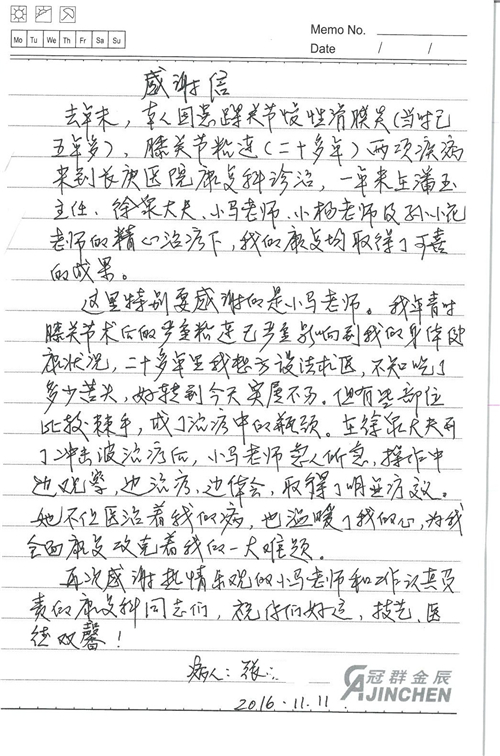 Memo No.
Mo Tu We Th Fr Sa Su
Date / /
感谢信
去年末，本人因患踝关节慢性滑膜炎（当时已
五年多），膝关节粘连（二十多年）两项疾病
来到长庚医院康复科诊治，一年来在潘玉
主任、徐泉大夫、小马老师、小杨老师及孙小花
老师的精心治疗下，我的康复均取得了可喜
的成果。
这里特别要感谢的是小马老师。我年青时
膝关节术后的严重粘连已严重影响到我的身体健
康状况，二十多年里我想方设法求医，不知吃了
多少苦头，好转到今天实属不易。但有些部位
比较棘手，成了治疗中的瓶颈。在徐泉大夫开
了冲击波治疗后，小马老师急人所急，操作中
边观察，边治疗，边体会，取得了明显疗效。
她不仅医治着我的病，也温暖了我的心，为我
全面康复攻克着我的一大难题。
再次感谢热情乐观的小马老师和工作认真负
责的康复科同志们，祝你们好运，技艺、医
德双馨！
病人：张
2016.11.11.
冠群金辰
AJINCHEN